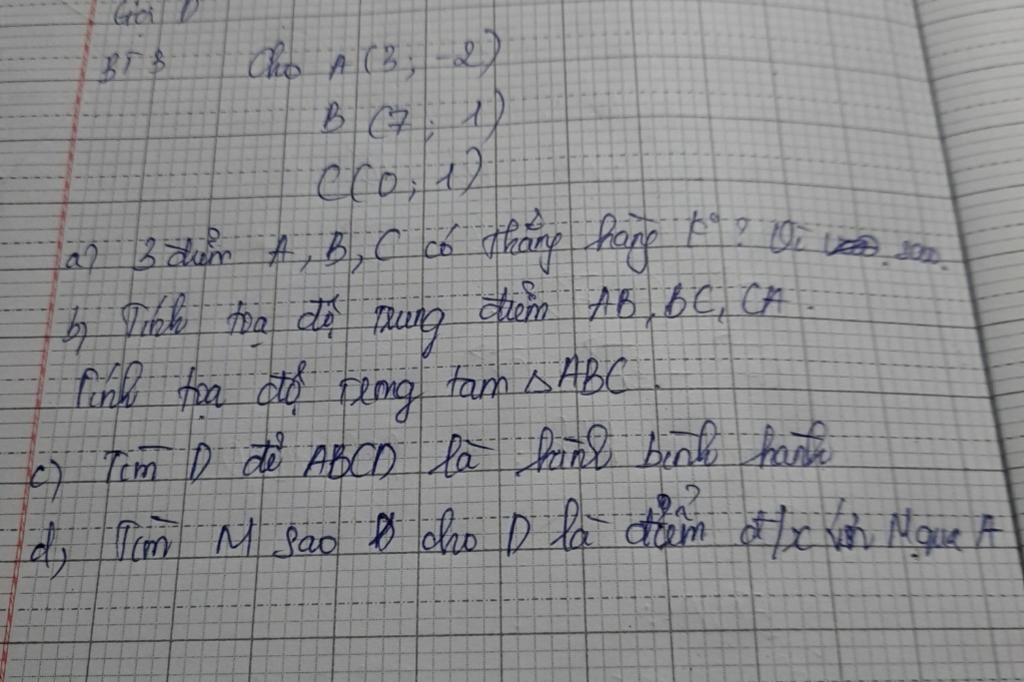 Gọi D
BT3 Cho A (3; -2)
B (7; 1)
C (0; 1)
a) 3 điểm A, B, C có thẳng hàng k°? Vì sao.
b, Tính tọa độ trung điểm AB, BC, CA.
Tính tọa độ trọng tam △ABC.
c) Tìm D để ABCD là hình bình hành
d, Tìm M sao cho D là điểm đ/x với M qua A